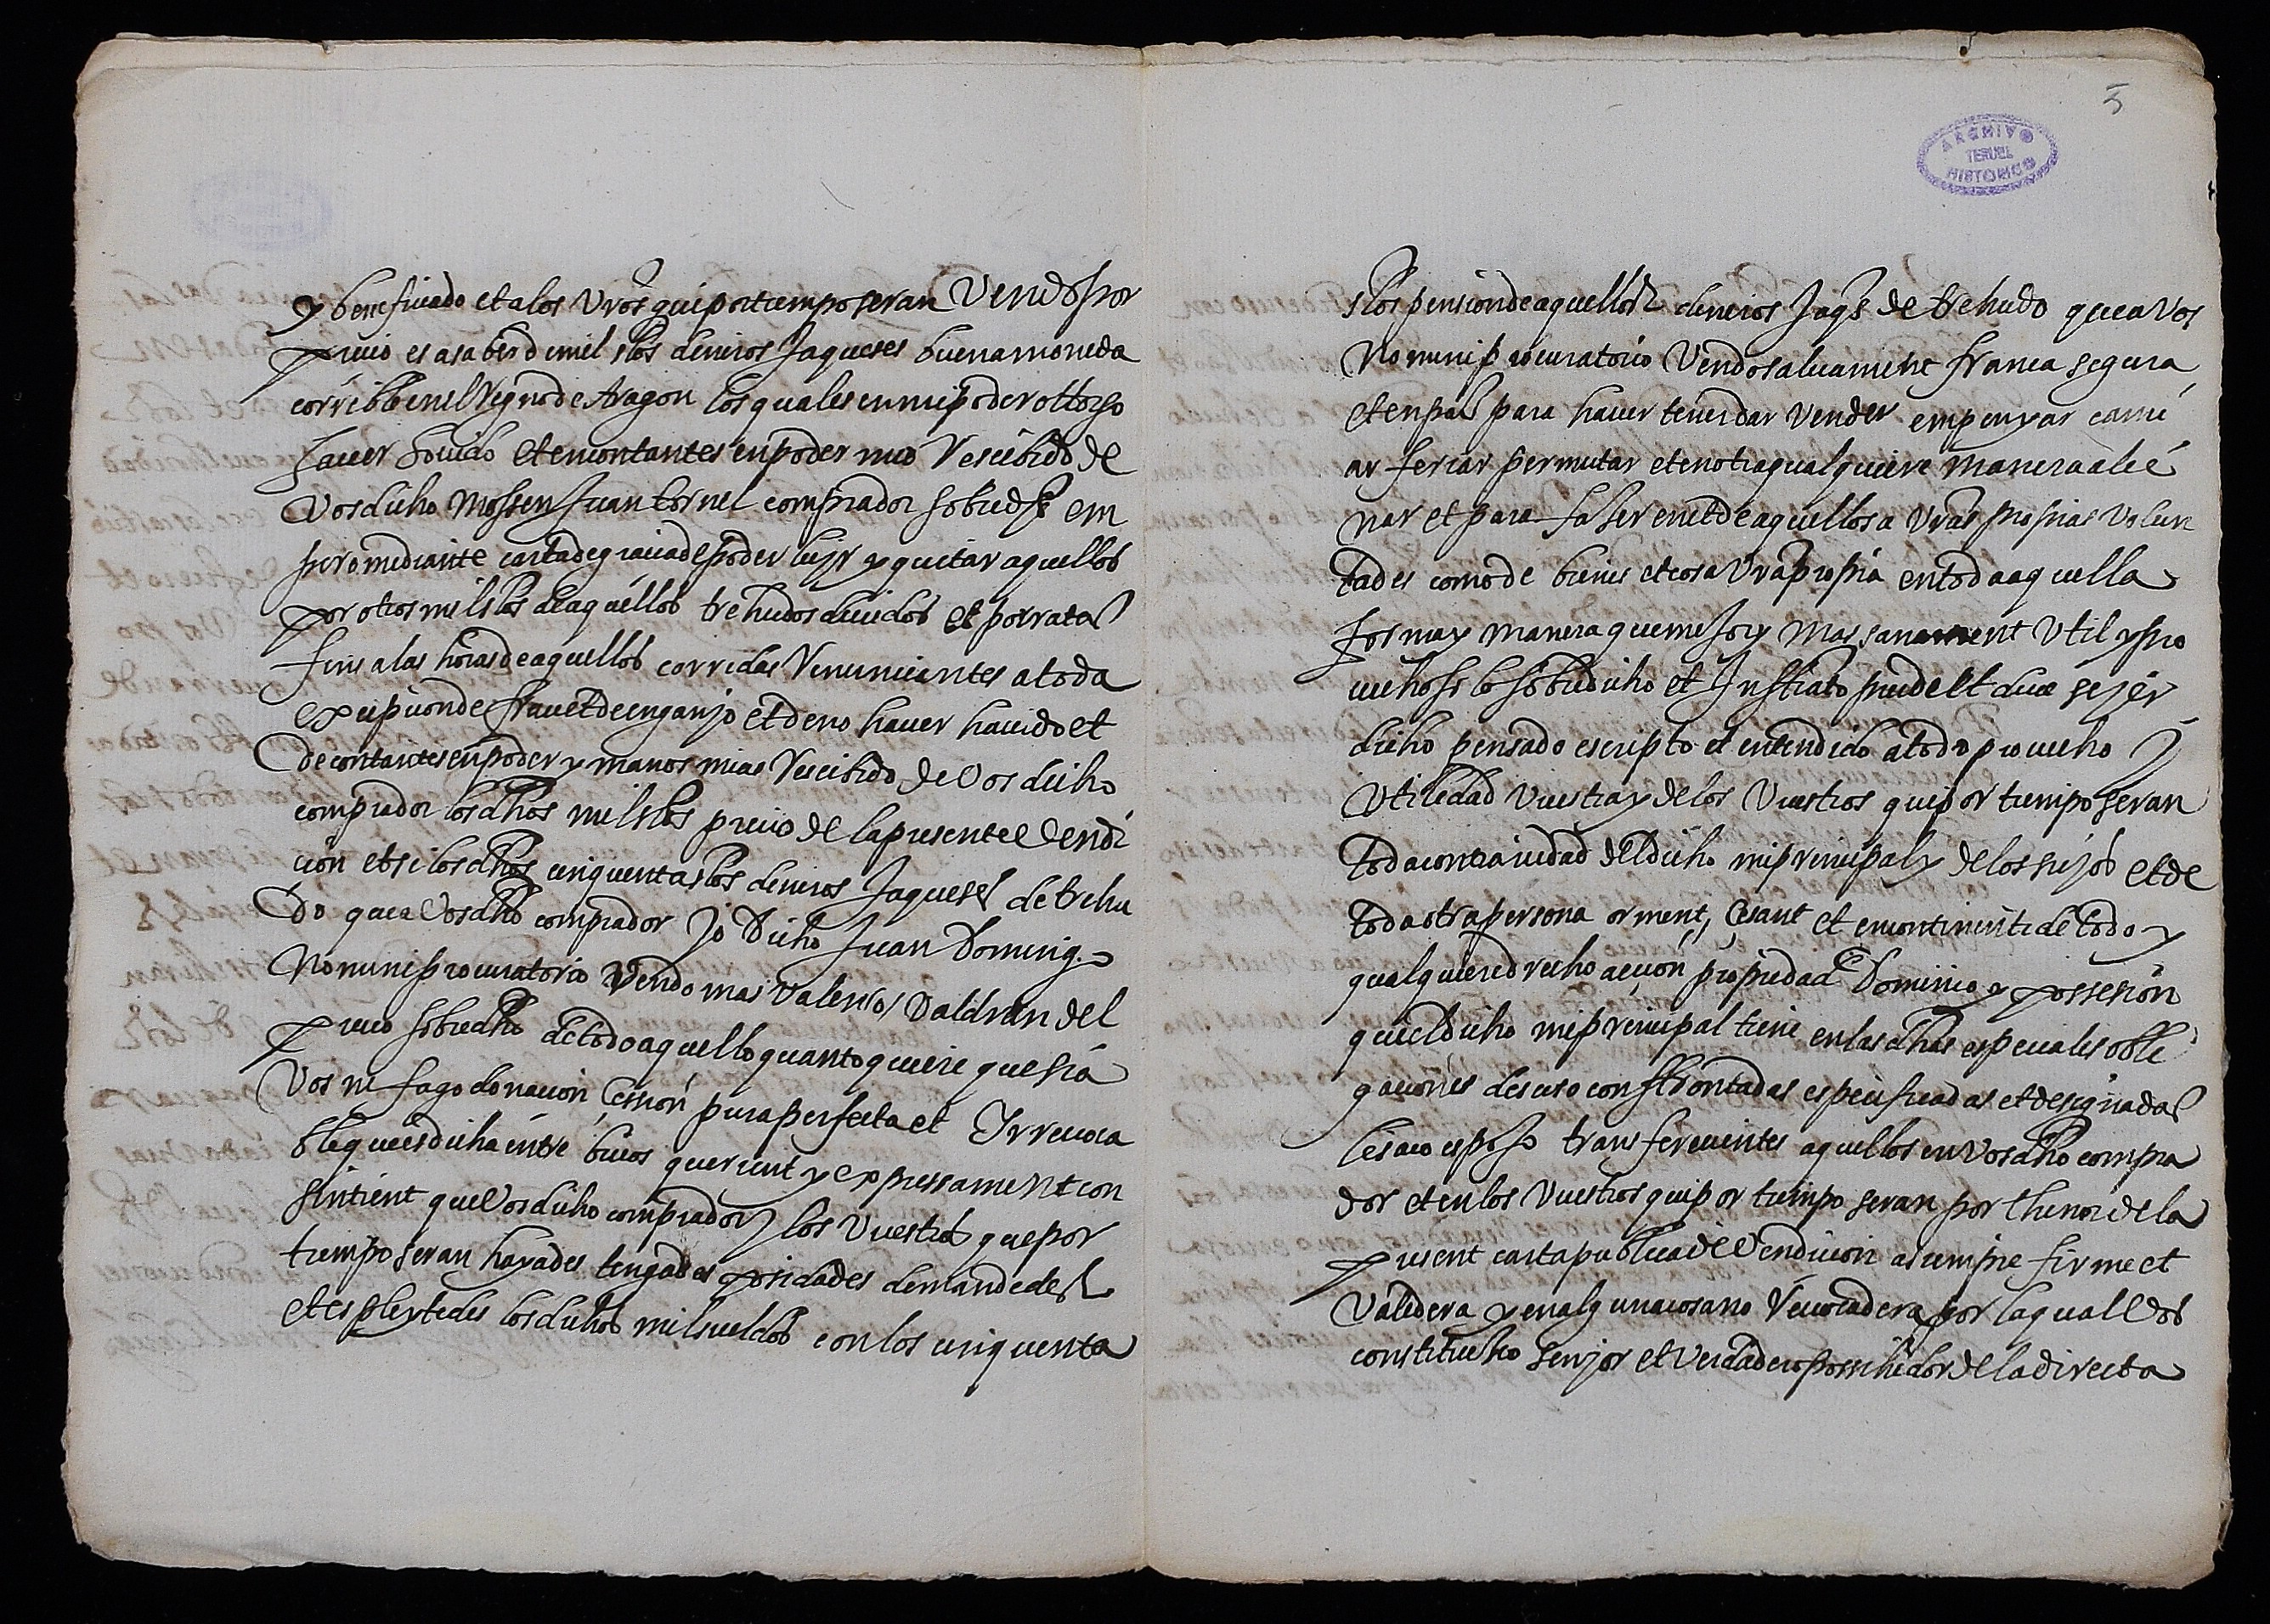 y beneficiado et a los vros qui por tiempo seran Vendo por
precio es a saber de mil slos dineros Jaqueses buena moneda
corrible en el Regno de Aragon los quales en mi poder ottorgo
hauer hauido et en contantes en poder mio Rescibido de
Vos dicho Mossen Juan Cornel comprador sobredho em
pero mediante carta de gracia de poder luyr y quitar aquellos
por otros mil slos de aquellos trehudos deuidos et por rata
fins a las horas de aquellos corridas Renuncientes a toda
excepcion de frau et de enganyo et de no hauer hauido et
de contantes en poder y manos mias Rescibido de Vos dicho
comprador los dhos mil slos precio de la present Vendi
cion et si los dhos cinquenta slos dineros Jaqueses de trehu
do que a Vos dho comprador Jo Dicho Juan Doming.
Nomine procuratorio Vendo mas Valen o Valdran del
precio sobredho de todo aquello quanto quiere que sia
Vos ne fago donacion Cession pura perfecta et Irreuoca
ble que es dicha entre biuos querient y expressament con
sintient que Vos dicho comprador y los Vuestros que por
tiempo seran hayades tengades posidades demandedes
et espleytedes los dichos mil sueldos con los cinquenta
5
ARCHIVO
TERUEL
HISTORICO
slos pension de aquellos dineros Jaqs de trehudo que a Vos
Nomine procuratorio Vendo saluament franca segura
et en paz para hauer tener dar Vender empenyar cami
ar feriar permutar et en otra qualquiere manera alie
nar et para fazer en et de aquellos a Vras propias Volun
tades como de bienes et cosa Vra propia en toda aquella
forma y manera que mejor y mas sanament Vtil y pro
uechoso lo sobredicho et Infrascripto puede et deue seyer
dicho pensado escripto et entendido a todo prouecho y
Vtilidad Vuestra y de los Vuestros qui por tiempo seran
toda contrariedad del dicho mi principal y de los suyos et de
toda otra persona orment, Cesant et encontinente de todo y
qualquiere drecho accion propiedad Dominio y possesion
que el dicho mi principal tiene en las dhas especiales obli
gaciones desuso confrontadas especificadas et designadas
les aco esposo transferecientes aquellos en Vos dho compra
dor et en los Vuestros qui por tiempo seran por thenor de la
present carta publica de Vendicion a siempre firme et
Valedera y en alguna cosa no Reuocadera por la qual Vos
constituezco senyor et Verdadero possehidor de la directa